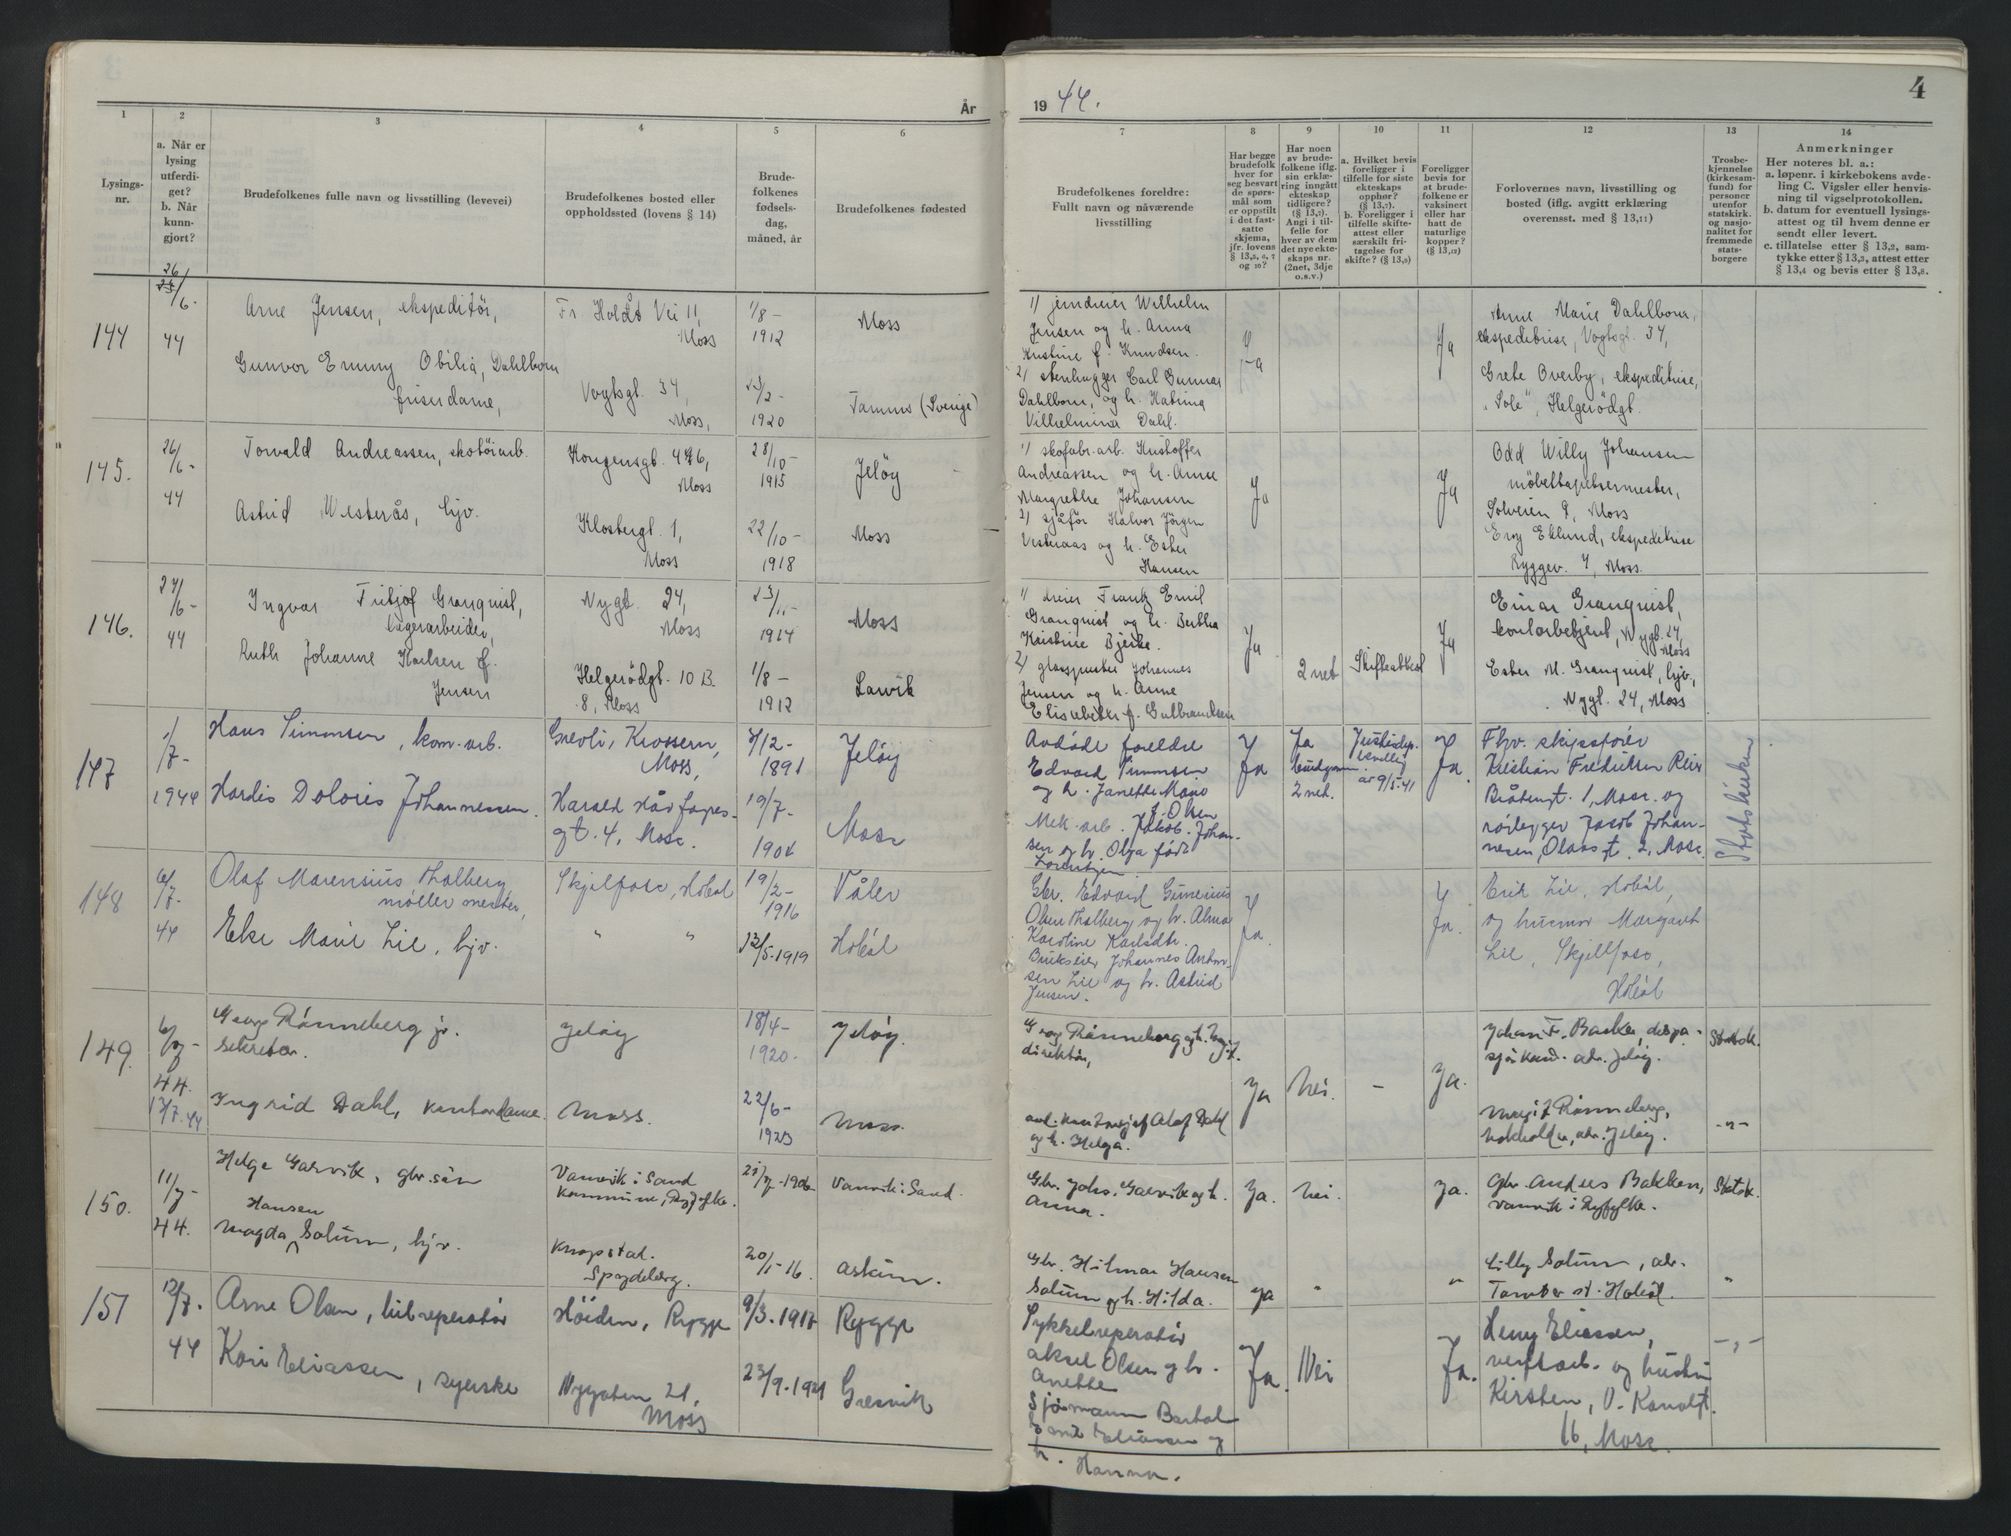 År
19 44.
4
1
2
3
4
5
6
7
8
9
10
11
12
13
14
Lysings-
nr.
a. Når er
lysing
utferdi-
get?
b. Når
kunn-
gjort?
Brudefolkenes fulle navn og livsstilling (levevei)
Brudefolkenes bosted eller
oppholdssted (lovens § 14)
Brude-
folkenes
fødsels-
dag,
måned, år
Brudefolkenes fødested
Brudefolkenes foreldre:
Fullt navn og nåværende
livsstilling
Har begge
brudefolk
hver for
seg besvart
de spørs-
mål som
er oppstilt
i det fast-
satte
skjema,
jfr. lovens
og 10?
Har noen
av brude-
folkene iflg.
sin erklæ-
ring inngått
ekteskap
tidligere?
Angi i til-
felle for
hver av dem
det nye ekte-
skaps nr.
(2net, 3dje
o.s.v.)
a. Hvilket bevis
foreligger i
tilfelle for siste
ekteskaps
opphør?
b. Foreligger i
tilfelle skifte-
attest eller
særskilt fri-
tagelse for
skifte? (§ 13,9)
Foreligger
bevis for
at brude-
folkene er
vaksinert
eller har
hatt de
naturlige
kopper?
Forlovernes navn, livsstilling og
bosted (iflg. avgitt erklæring
overensst. med § 13,11)
Trosbe-
kjennelse
(kirkesam-
fund) for
personer
utenfor
statskirk.
og nasjo-
nalitet for
fremmede
stats-
borgere
Anmerkninger
Her noteres bl. a.:
a. løpenr. i kirkebokens avde-
ling C. Vigsler eller henvis-
ning til vigselprotokollen.
b. datum for eventuell lysings-
attest og til hvem denne er
sendt eller levert.
c. tillatelse etter § 13,2, sam-
tykke etter § 13,3, attest etter
§ 13,4 og bevis etter § 13,8.
144
26/6.
44
Arne Jensen, ekspeditör,
Gunvor Emmy Obilia, Dahlbom
frisørdame,
Fr. Holdts Vei 11,
Moss
Vogtsgt. 34,
Moss,
1/8 -
1912
23/2 -
1920
Moss
Tanum (Sverige)
1) jerndreier Wilhelm
Jensen og h. Anna
Kristine f. Knudsen.
2) stenhugger Carl Gunnar
Dahlbom, og h. Katrina
Vilhelmina Dahl.
Ja
Ja
Anne Marie Dahlbom,
ekspeditrise, Vogtsgt. 34,
Grete Överby, ekspeditrise,
"Sole", Helgerödgt.
145.
26/6 -
44
Torvald Andreassen, skotöiarb.
Astrid Westerås, hjv.
Kongensgt. 46,
Moss
Klostergt. 1,
Moss
28/10 -
1915
22/10 -
1918
Jelöy
Moss
1) skofabr.arb. Kristoffer
Andreassen og h. Anne
Margrethe Johansen
2) sjåför Halvor Jörgen
Vesteraas og h. Ester
Hansen
Ja
Ja
Odd Willy Johansen
möbeltapetsermester,
Solveien 9, Moss
Eroy Eklund, ekspeditrise
Ryggev. 7, Moss.
146.
27/6 -
44
Ingvar Fritjof Granquist,
lagerarbeider,
Ruth Johanne Karlsen f.
Jensen
Nygt. 24,
Moss
Helgerödgt. 10 B.
8, Moss
23/11 -
1914
1/8 -
1912
Moss
Larvik
1) dreier Frantz Emil
Granquist og h. Bertha
Kristine Bjerke.
2) glasspuster Johannes
Jensen og h. Anne
Elisabeth f. Gulbrandsen
Ja
2 net
Skifteattest
Ja
Einar Granquist,
kontorbetjent, Nygt. 24,
Moss
Ester M. Granquist, hjv.,
Nygt. 24, Moss
147
1/7 -
1944
Hans Simonsen, kom. arb.
Hardis Dolores Johannessen.
Sneoli, Krossern,
Moss,
Harald Hårfagres-
gt. 4, Moss.
7/12 -
1891
19/7 -
1904
Jelöy
Moss
Avdöde foreldre
Edvard Simonsen
og h. Janette Marie
f. Olsen
Mek. arb. Jakob Johan-
sen og h. Olga född
Lorentzen
Ja
Ja
brudgom
2 net.
Justisdep.
bevilling
av 9/5-41
Ja.
Fhv. skipsförer
Kristian Fredriksen Reir
Bråtengt. 1, Moss. og
rörlegger Jacob Johan-
nesen, Olavsgt. 2, Moss.
Statskirken
148
6/7 -
44
Olaf Marensius Thalberg
möllermester,
Else Marie Lie, hjv.
Skjelfoss, Hobøl
" "
19/2 -
1916
12/5-1919
Våler
Hobøl
Gbr. Edvard Gunerius
Olsen Thalberg og h. Alma
Karoline Karlsdtr.
Brukseier Johannes Anton-
sen Lie og h. Astrid
Jensen.
Ja.
Ja.
Erik Lie, Hobøl,
og husmor Margarat
Lie, Skjelfoss,
Hobøl
149.
6/7 -
44.
12/7.44
Georg Rönneberg jr.
sekretær.
Ingrid Dahl, kontordame.
Jelöy
Moss.
18/4 -
1920.
22/6 -
1923
Jelöy.
Moss.
Georg Rönneberg og h. Magit.
direktör,
avd. kontorsjef Olaf Dahl
og h. Helga.
Ja
Nei.
-
Ja.
Johan F. Bache, dispa-
sjör kand. adr. Jelöy.
Magit Rönneberg,
bokholder, adr. Jelöy.
Statsk.
-"-
150.
11/7 -
44.
Helge Garvik, gbr. sön
Hansen
Magda Solum, hjv.
Vanvik i Sand
kommune, Ryfylke.
Knapstad.
Spydeberg.
21/7-1906
20/1-16.
Vanvik i Sand.
Askim.
Gbr. Johs. Garvik og h.
Anna.
Gbr. Hilmar Hansen
Solum og h. Hilda.
Ja.
Nei.
Ja.
Ja
"
"
Gbr. Anders Bakken,
Vanvik i Ryfylke.
Lilly Solum, adr.
Tomter st. Hobøl.
Statsk.
"
151
12/7.
44
Arne Olsen, bilreparatör
Kari Eliassen, syerske
Höiden, Rygge
Nygaten 21,
Moss
9/3.1917
23/9.1921
Rygge
Gresvik
Sykkelreparatör
Aksel Olsen og h.
Anette
Sjömann Bertel
Eliassen og
h. Hanna.
Ja.
Nei
Ja.
Henry Eliassen,
verftarb. og hustru
Kirsten, V. Kanalgt.
16, Moss.
-"-